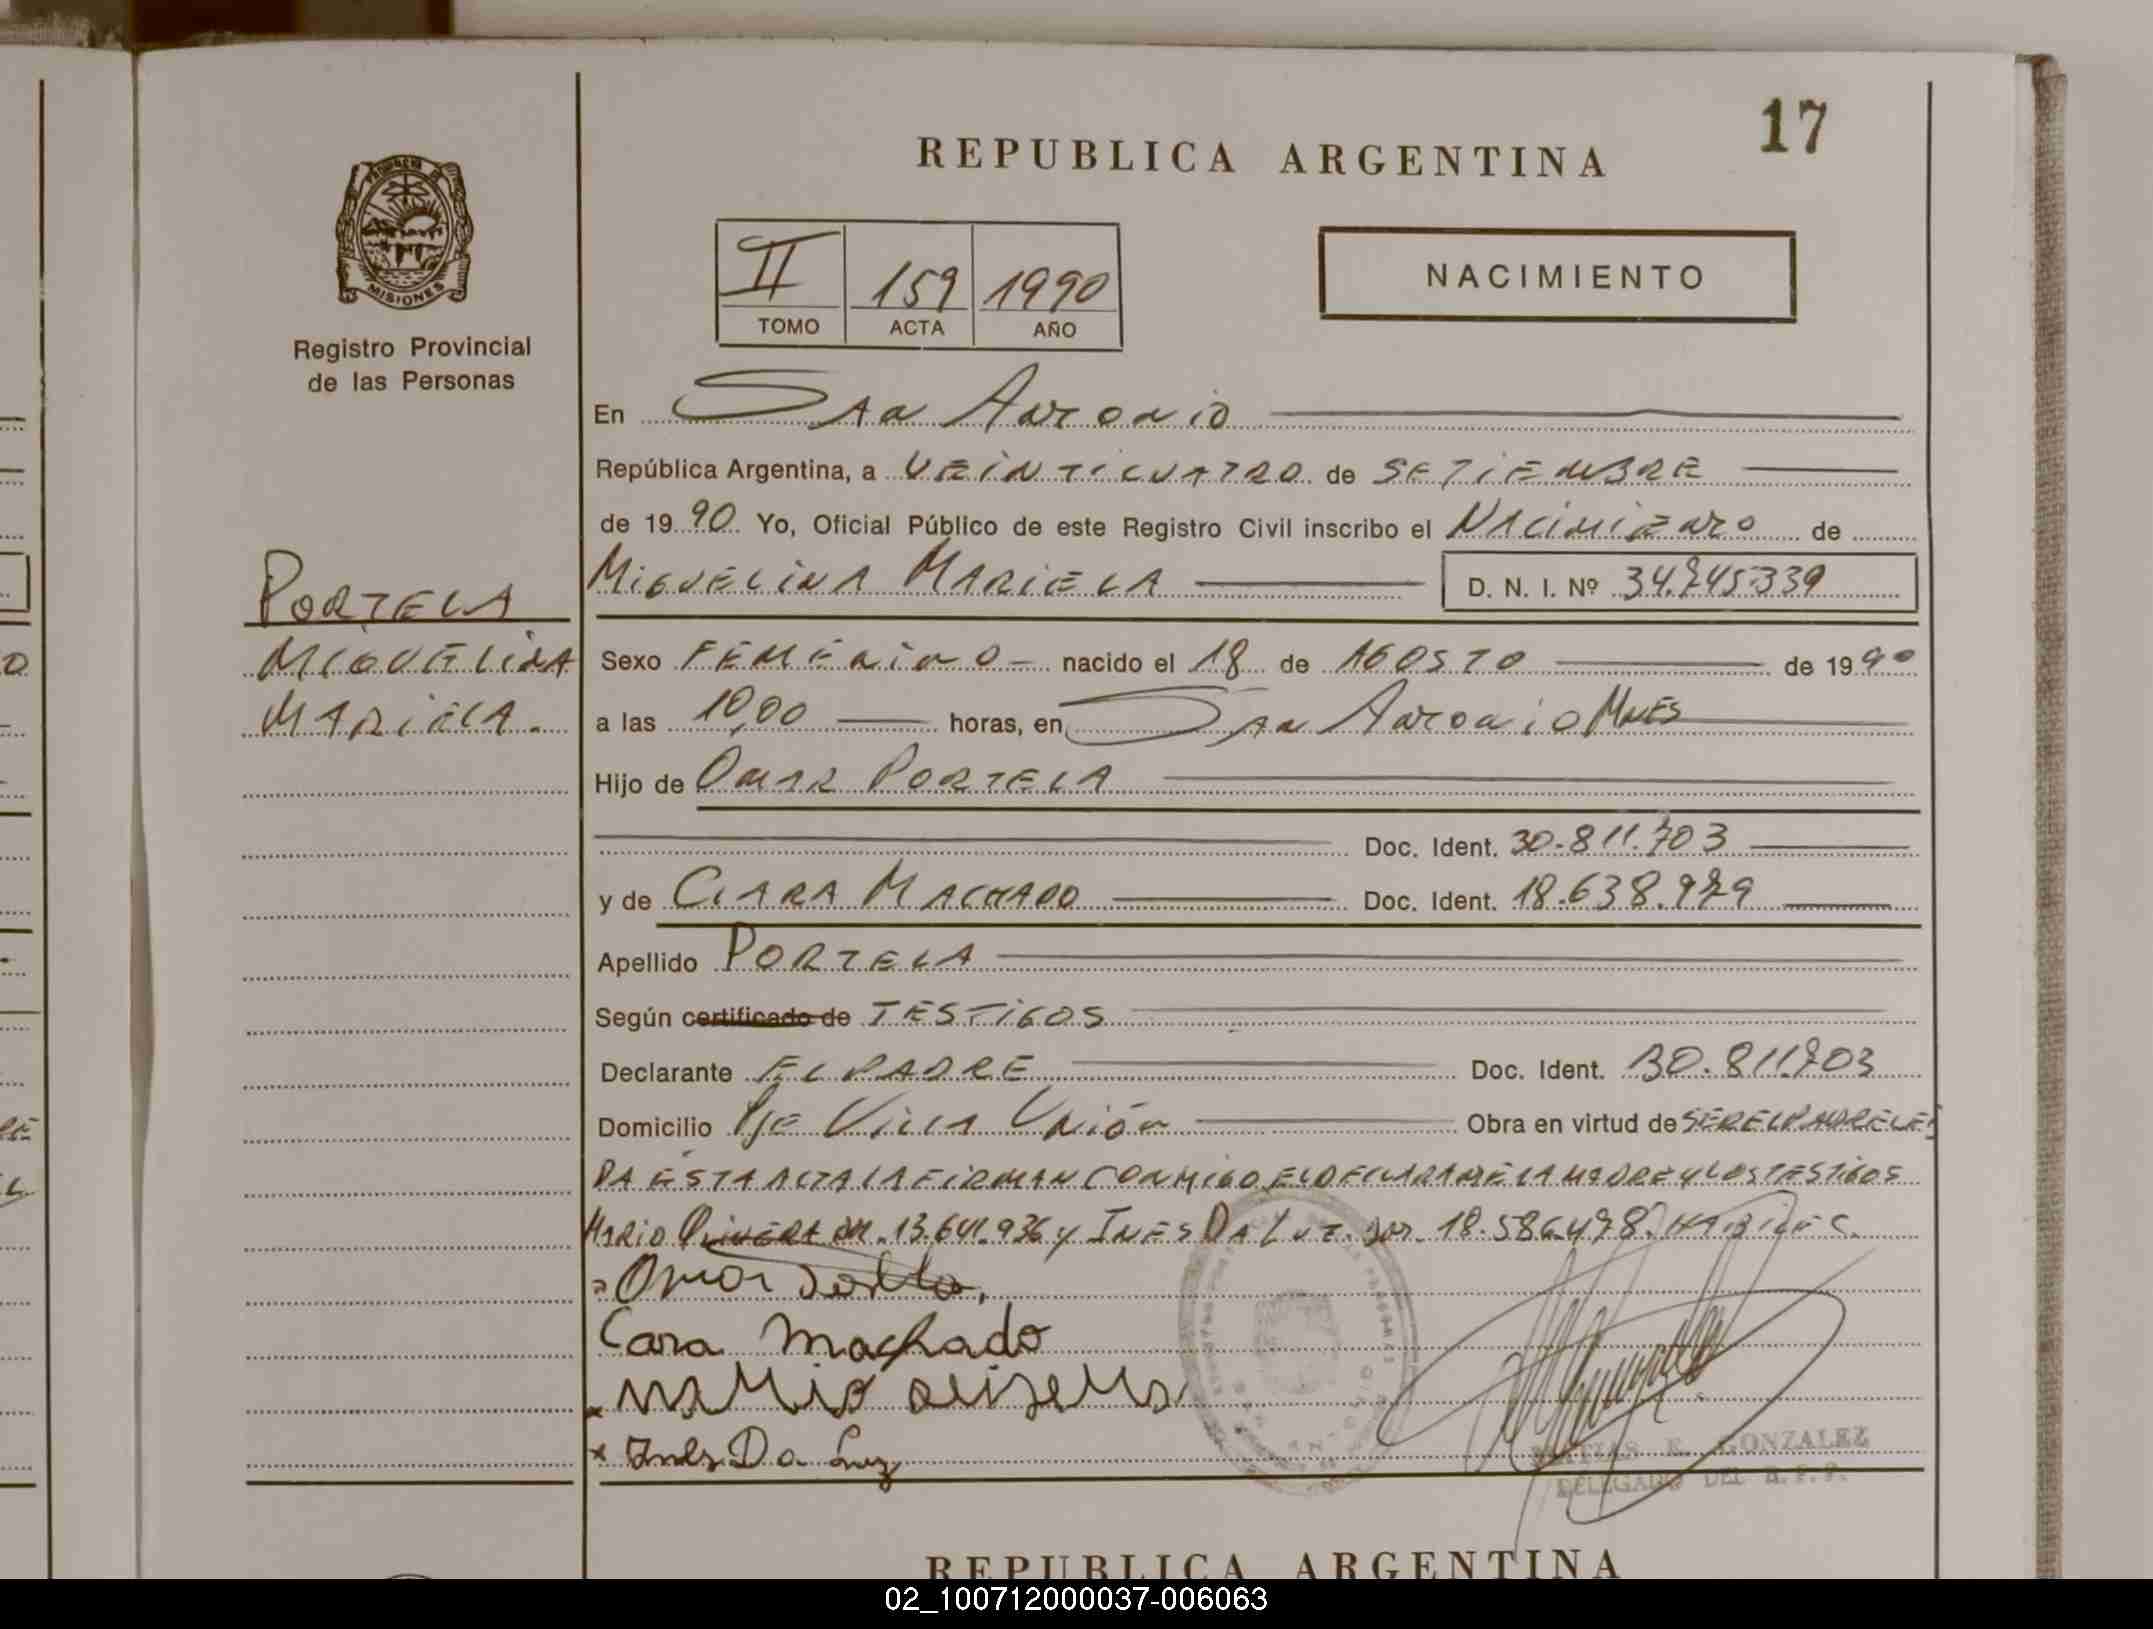 17
REPUBLICA ARGENTINA
PROVINCIA DE
MISIONES
Registro Provincial
de las Personas
II 159 1990
TOMO ACTA AÑO
NACIMIENTO
En San Antonio
República Argentina, a VEINTICUATRO de SETIEMBRE
de 1990 Yo, Oficial Público de este Registro Civil inscribo el Nacimiento de
PORTELA
MIGUELINA
MARIELA.
MIGUELINA MARIELA D. N. I. Nº 34.745.339
Sexo FEMENINO - nacido el 18 de AGOSTO de 1990
a las 10,00 horas, en San Antonio Mnes
Hijo de OMAR PORTELA
Doc. Ident. 30.811.703
y de CLARA MACHADO Doc. Ident. 18.638.979
Apellido PORTELA
Según certificado de TESTIGOS
Declarante EL PADRE Doc. Ident. 30.811.703
Domicilio Pje Villa Unión Obra en virtud de SER EL PADRE LEI
DA ESTA ACTA LA FIRMAN CONMIGO EL DECLARANTE LA MADRE Y LOS TESTIGOS
MARIO 13.641.936 y INES DA LUZ 18.586.478. HABILES.
Omar
Cara machado
Ines Da Luz
MATIAS E. GONZALEZ
DELEGADO DEL R.P.P.
REPUBLICA ARGENTINA
02_100712000037-006063